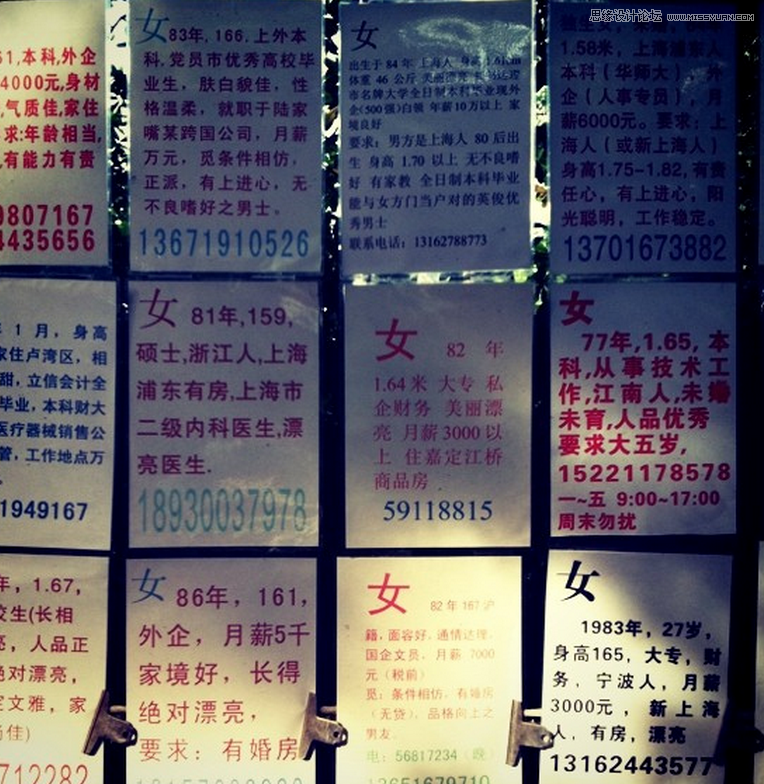 思缘设计论坛 WWW.MISSYUAN.COM
61,本科,外企
4000元,身材
,气质佳,家住
求:年龄相当,
有能力有责
9807167
4435656
女
83年, 166. 上外本
科. 党员市优秀高校毕
业生， 肤白貌佳， 性
格温柔， 就职于陆家
嘴某跨国公司， 月薪
万元， 觅条件相仿，
正派， 有上进心， 无
不良嗜好之男士。
13671910526
女
出生于 84 年 上海人 身高 1.61cm
体重 46 公斤 美丽漂亮
市名牌大学全日制本科毕业现外
企(500 强)白领 年薪 10 万以上 家
境良好
要求： 男方是上海人 80 后出
生 身高 1.70 以上 无不良嗜
好 有家教 全日制本科毕业
能与女方门当户对的英俊优
秀男士
联系电话：13162788773
1.58米， 上海浦东人
本科（华师大）, 外
企（人事专员）, 月
薪6000元。要求：上
海人（或新上海人）
身高1.75-1.82, 有责
任心，有上进心，阳
光聪明，工作稳定。
13701673882
年 1 月， 身高
家住卢湾区，相
甜，立信会计全
毕业，本科财大
医疗器械销售公
管，工作地点万
1949167
女
81年,159,
硕士,浙江人,上海
浦东有房,上海市
二级内科医生,漂
亮医生.
18930037978
女
82 年
1.64 米 大专 私
企财务 美丽漂
亮 月薪 3000 以
上 住嘉定江桥
商品房
59118815
女
77年,1.65, 本
科,从事技术工
作,江南人,未婚
未育,人品优秀
要求大五岁,
15221178578
一~五 9:00~17:00
周末勿扰
年，1.67,
校生(长相
亮，人品正
绝对漂亮，
文雅，家
佳)
712282
女
86年，161,
外企， 月薪5千
家境好， 长得
绝对漂亮，
要求： 有婚房
女
82 年 167 沪
籍，面容好，通情达理，
国企文员，月薪 7000
元（税前）
觅：条件相仿，有婚房
（无贷），品格向上之
男友.
电：56817234（晚）
13651679710
女
1983年，27岁，
身高165，大专，财
务， 宁波人，月薪
3000元， 新上海
人，有房，漂亮
13162443577